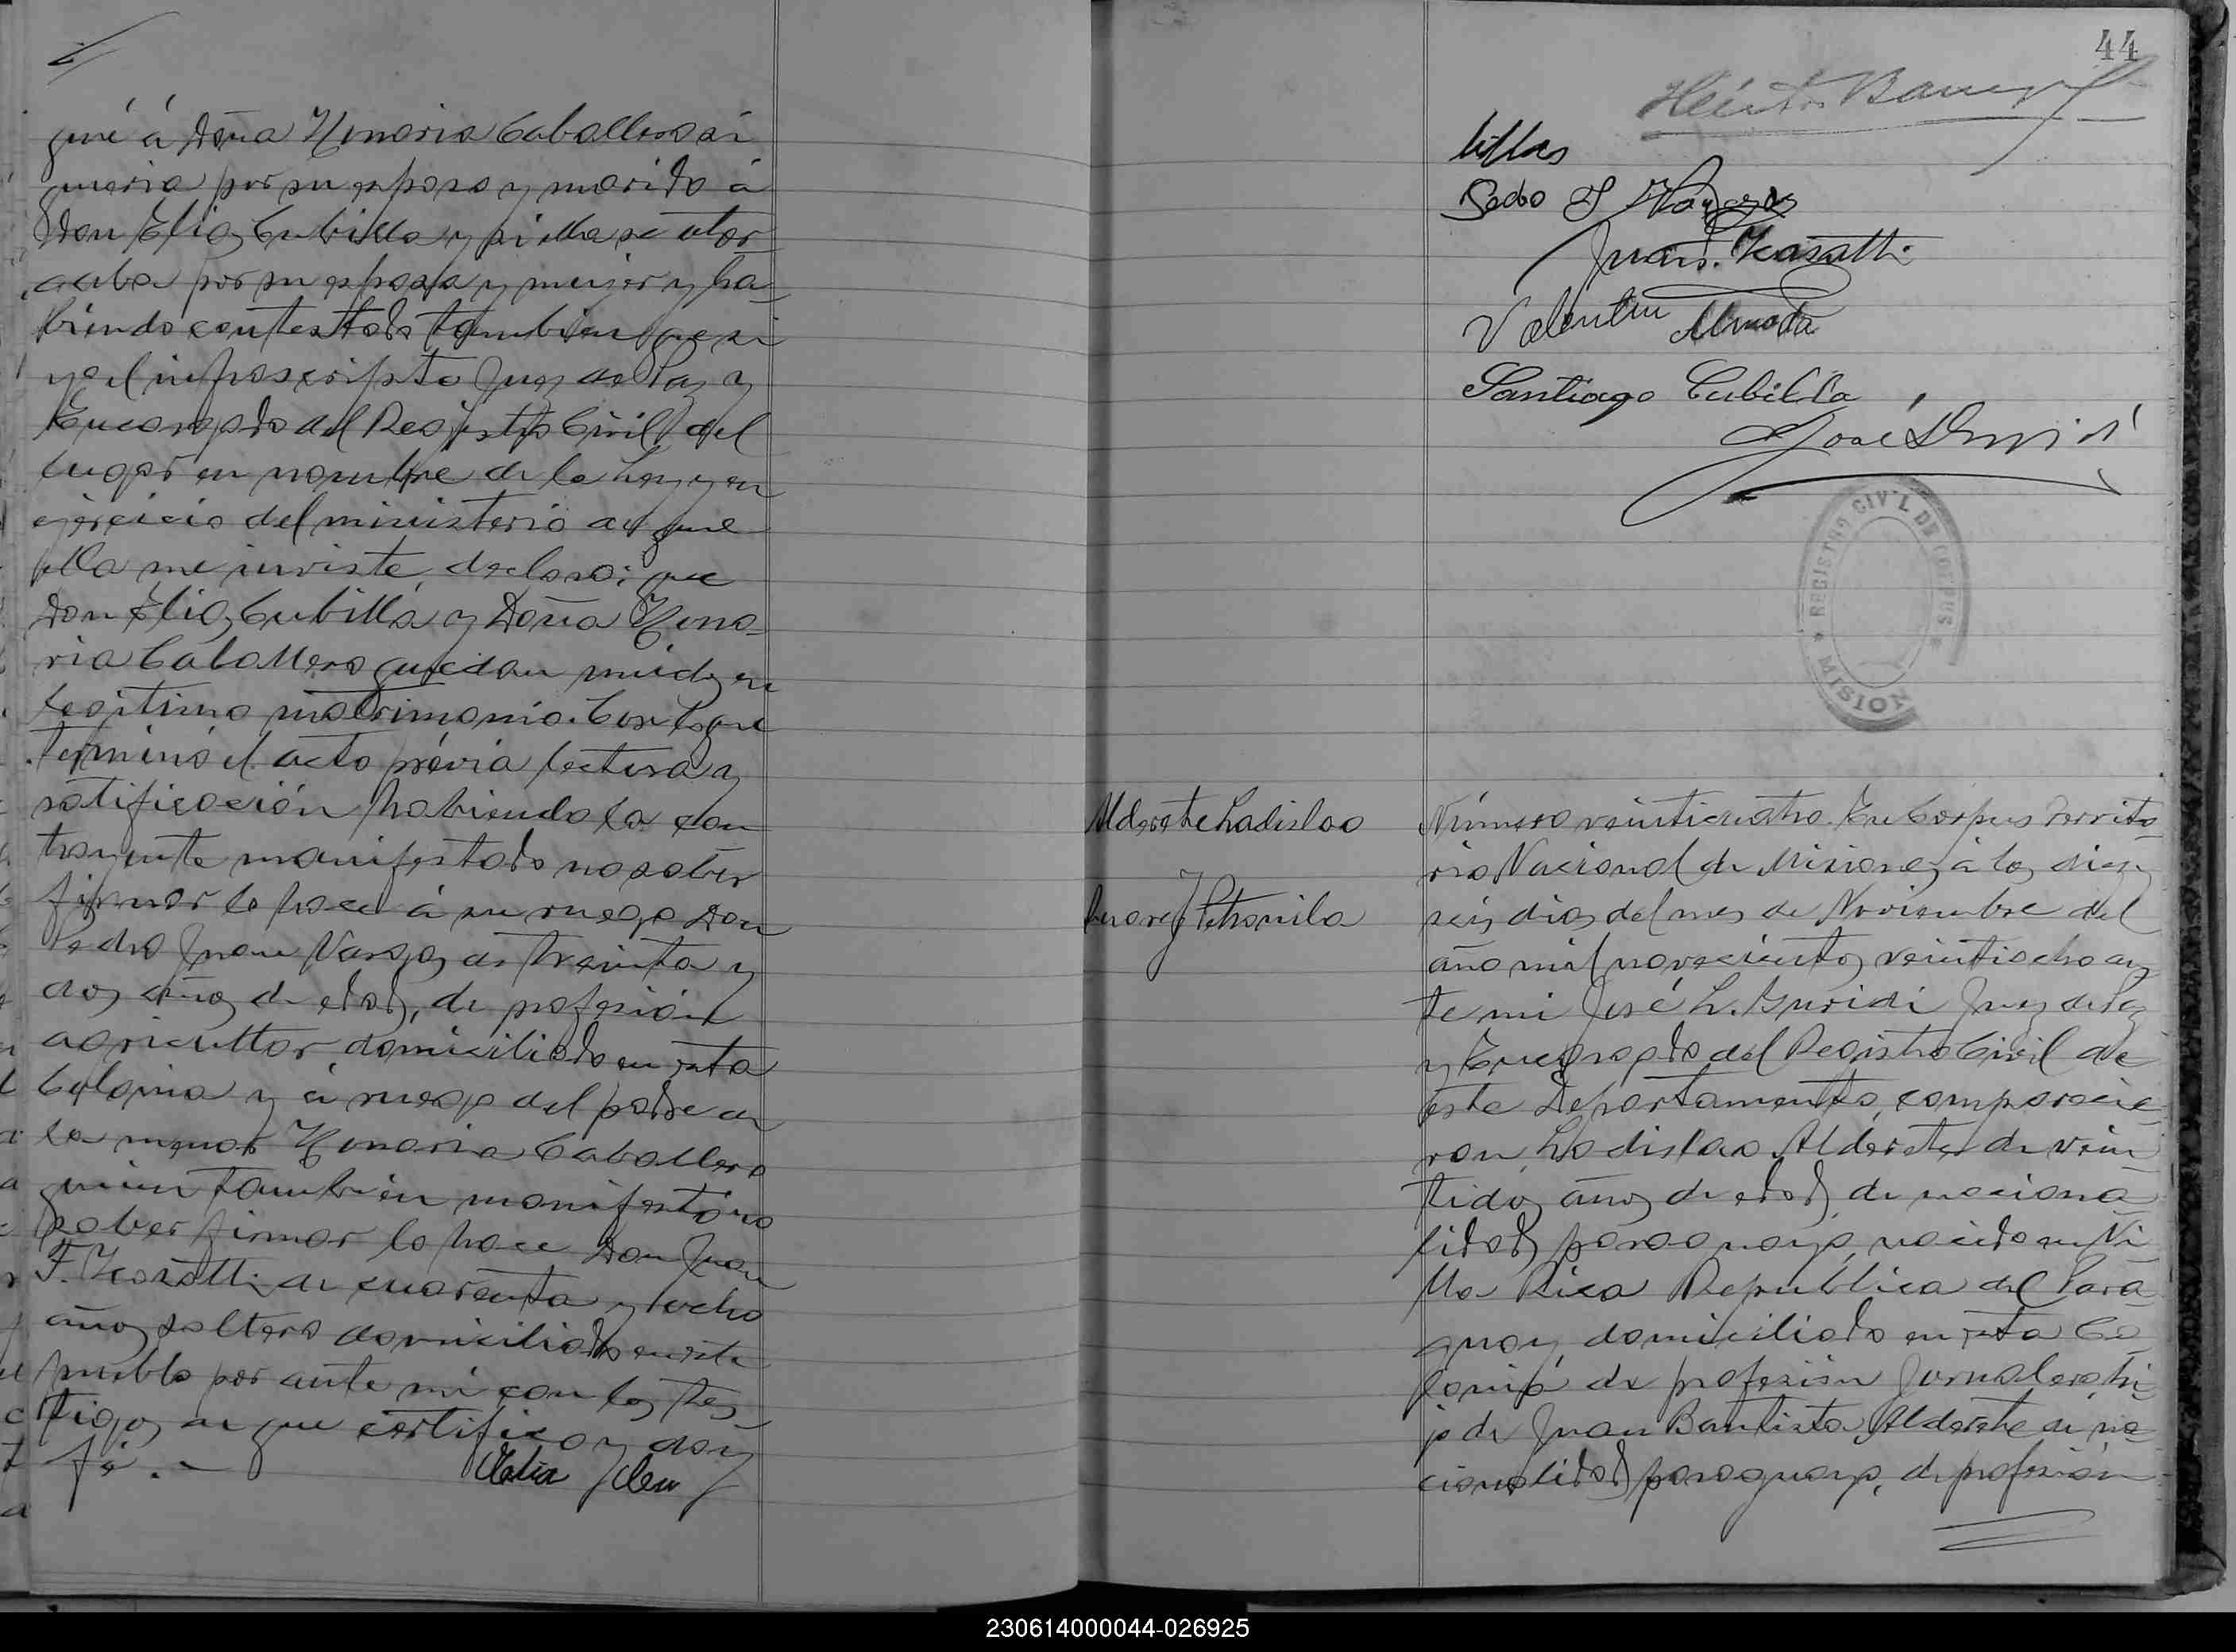 gué á Doña Honoria Caballero si
queria por su esposo y marido á
Don Elias Cubilla y si ella se otor
gaba por su esposa y mujer y ha-
biendo contestado tambien que si
yo el infrascripto Juez de Paz y
Encargado del Registro Civil del
lugar en nombre de la Ley y en
ejercicio del ministerio de que
ella me inviste, declaro: que
Don Elias Cubilla y Doña Hono-
ria Caballero quedan unidos en
legitimo matrimonio. Con lo que
terminó el acto prévia lectura y
ratificación habiendo la con
trayente manifestado no saber
firmar lo hace á su ruego Don
Pedro Juan Vargas de treinta y
dos años de edad, de profesión
agricultor domiciliado en esta
Colonia y á ruego del padre de
la menor Honoria Caballero
quien tambien manifestó no
saber firmar lo hace Don Juan
F. de cuarenta y ocho
años soltero domiciliado en este
pueblo por ante mi con los tes-
tigos de que certifico y doy
fé.-
44
Pedro J Vargas
Juan F.
Valentin Almada
Santiago Cubilla
José L Guridi
REGISTRO CIVIL DE CORPUS
MISIONES
Alderete Ladislao
Petronila
Número veinticuatro. En Corpus Territo
rio Nacional de Misiones á los diez y
seis dias del mes de Noviembre del
año mil novecientos veintiocho an
te mi José L. Guridi Juez de Paz
y Encargado del Registro Civil de
este Departamento, comparecie-
ron, Ladislao Alderete, de vein
tidos años de edad, de naciona
lidad paraguayo, nacido en Vi
lla Rica Republica del Para-
guay, domiciliado en esta Co
lonia de profesión Jornalero, hi-
jo de Juan Bautista Alderete de na-
cionalidad paraguayo, de profesión
230614000044-026925